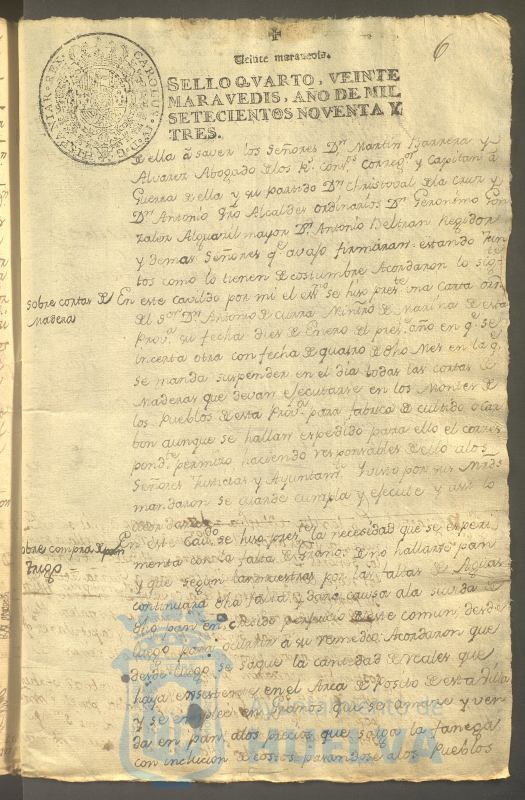 6
Veinte maravedis.
SELLO QVARTO, VEINTE
MARAVEDIS, AÑO DE MIL
SETECIENTOS NOVENTA Y
TRES.
CAROLUS IV D G HISPANIAR REX
de ella â saver los Señores Dn Martin Barrera y
Alvarez Abogado de los Rs Consos Corregor y Capitan â
Guerra de ella y su partido Dn Christoval de la Cruz y
Dn Antonio Alcaldes ordinarios Dn Geronimo Gon
zalez Alguazil mayor Dn Antonio Beltran Regidor
y demas Señores qe avajo firmáram estando Jun
tos como lo tienen de costumbre Acordaron lo sigte
sobre cortas de
Madera
En este cavildo por mi el esno se hiso preste una carta orn
del Sor Dn Antonio de Ministro de Marina de esta
Prova su fecha dies de Enero del prest año en qe se
incerta otra con fecha de quatro de dho Mes en la qe
se manda suspender en el dia todas las cortas de
Maderas que devan ejecutarse en los Montes de
los Pueblos de esta Prova para fabrica de curtido o car
bon aunque se hallan espedido para ello el corres
pondte permiso, haciendo responsables de ello a los
Señores Justicias y Ayuntamto Y visto por sus Mrds
mandaron se guarde cumpla y ejecute y assi lo
acordaron
sobre compra de
trigo
En este Cavdo se hiso preste la necesidad que se experi
menta con la falta de Granos de no hallarse pan
y que segun las muestras por las faltas de Aguas
continuará dha falta y
dho pan en perjuicio de este comun desde
luego para ocurrir â su remedio Acordaron que
desde luego se saque la cantidad de reales que
haya en ser en el Arca de Posito de esta Villa
y se emplee en granos que se amase y ven
da en pan, a los precios que salga la fanega
con inclucion de costos pasandose a los Pueblos
Ayuntamiento de
HUELVA